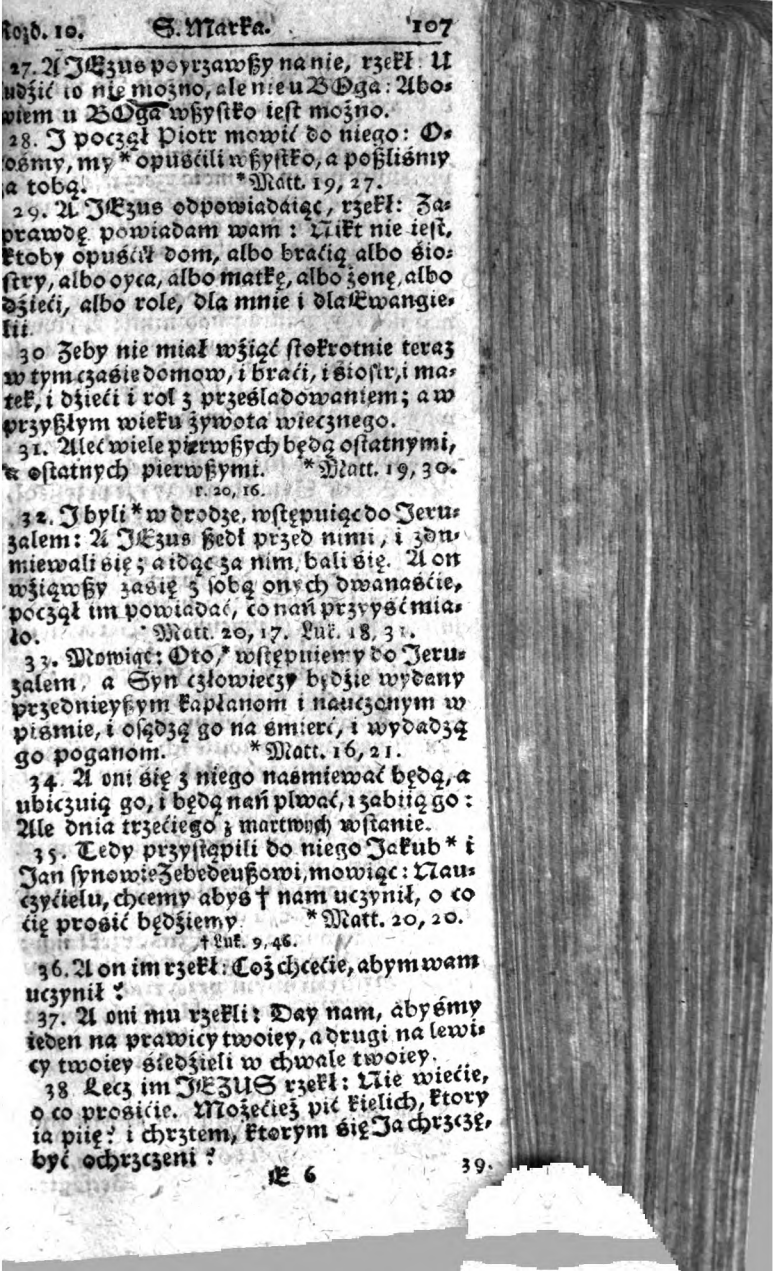 Rozd. 10. S. Marka. 107
27. A JEzus poyrzawßy na nie, rzekł: U
ludźić to nie możno, ale nie u BOga: Abo-
wiem u BOga wßystko iest możno.
28. J począł Piotr mowić do niego: O-
ośmy, my * opuśćili wßystko, a poßliśmy
a tobą. * Matt. 19, 27.
29. A JEzus odpowiadaiąc, rzekł: Za-
prawdę powiadam wam: Nikt nie iest,
ktoby opuśćił dom, albo braćią albo śio-
stry, albo oyca, albo matkę, albo żonę, albo
dźieći, albo role, dla mnie i dla Ewangie-
lii.
30 Zeby nie miał wźiąć stokrotnie teraz
w tym czaśie domow, i braći, i śiostr, i ma-
tek, i dźieći i rol z prześladowaniem; a w
przyßłym wieku żywota wiecznego.
31. Aleć wiele pierwßych będą ostatnymi,
a ostatnych pierwßymi. * Matt. 19, 30.
r. 20, 16.
32. J byli * w drodze, wstępuiąc do Jeru-
zalem: A JEzus ßedł przed nimi, i zdu-
miewali śię; a idąc za nim, bali śię. A on
wźiąwßy zaśię z sobą onych dwanaśćie,
począł im powiadać, co nań przyyść mia-
ło. * Matt. 20, 17. Luk. 18, 31.
33. Mowiąc: Oto, * wstępuiemy do Jeru-
zalem, a Syn człowieczy będźie wydany
przednieyßym kapłanom i nauczonym w
piśmie, i osądzą go na śmierć, i wydadzą
go poganom. * Matt. 16, 21.
34. A oni śię z niego naśmiewać będą, a
ubiczuią go, i będą nań plwać, i zabiią go:
Ale dnia trzećiego z martwych wstanie.
35. Tedy przystąpili do niego Jakub * i
Jan synowie Zebedeußowi, mowiąc: Nau-
czyćielu, chcemy abyś † nam uczynił, o co
ćię prośić będźiemy. * Matt. 20, 20.
† Luk. 9, 46.
36. A on im rzekł: Coż chcećie, abym wam
uczynił?
37. A oni mu rzekli: Day nam, abyśmy
ieden na prawicy twoiey, a drugi na lewi-
cy twoiey śiedźieli w chwale twoiey.
38 Lecz im JEZUS rzekł: Nie wiećie,
o co prośićie. Możećież pić kielich, ktory
ia piię? i chrztem, ktorym śię Ja chrzczę,
być ochrzczeni?
E 6 39.